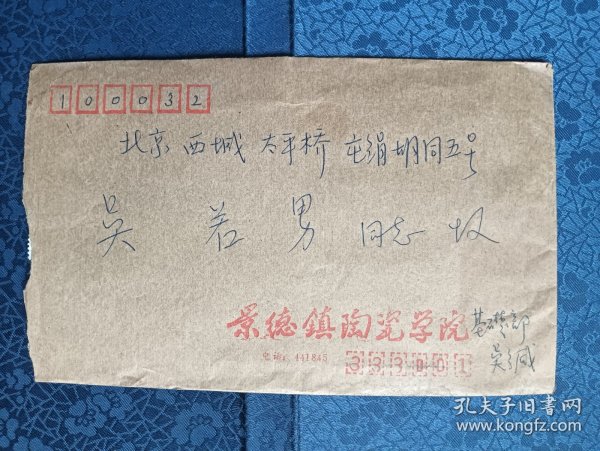 100032
北京 西城 太平桥 屯绢胡同五号
吴若男 同志 收
景德镇陶瓷学院
电话：441845
333001
基础部
吴
孔夫子旧书网
www.kongfz.com